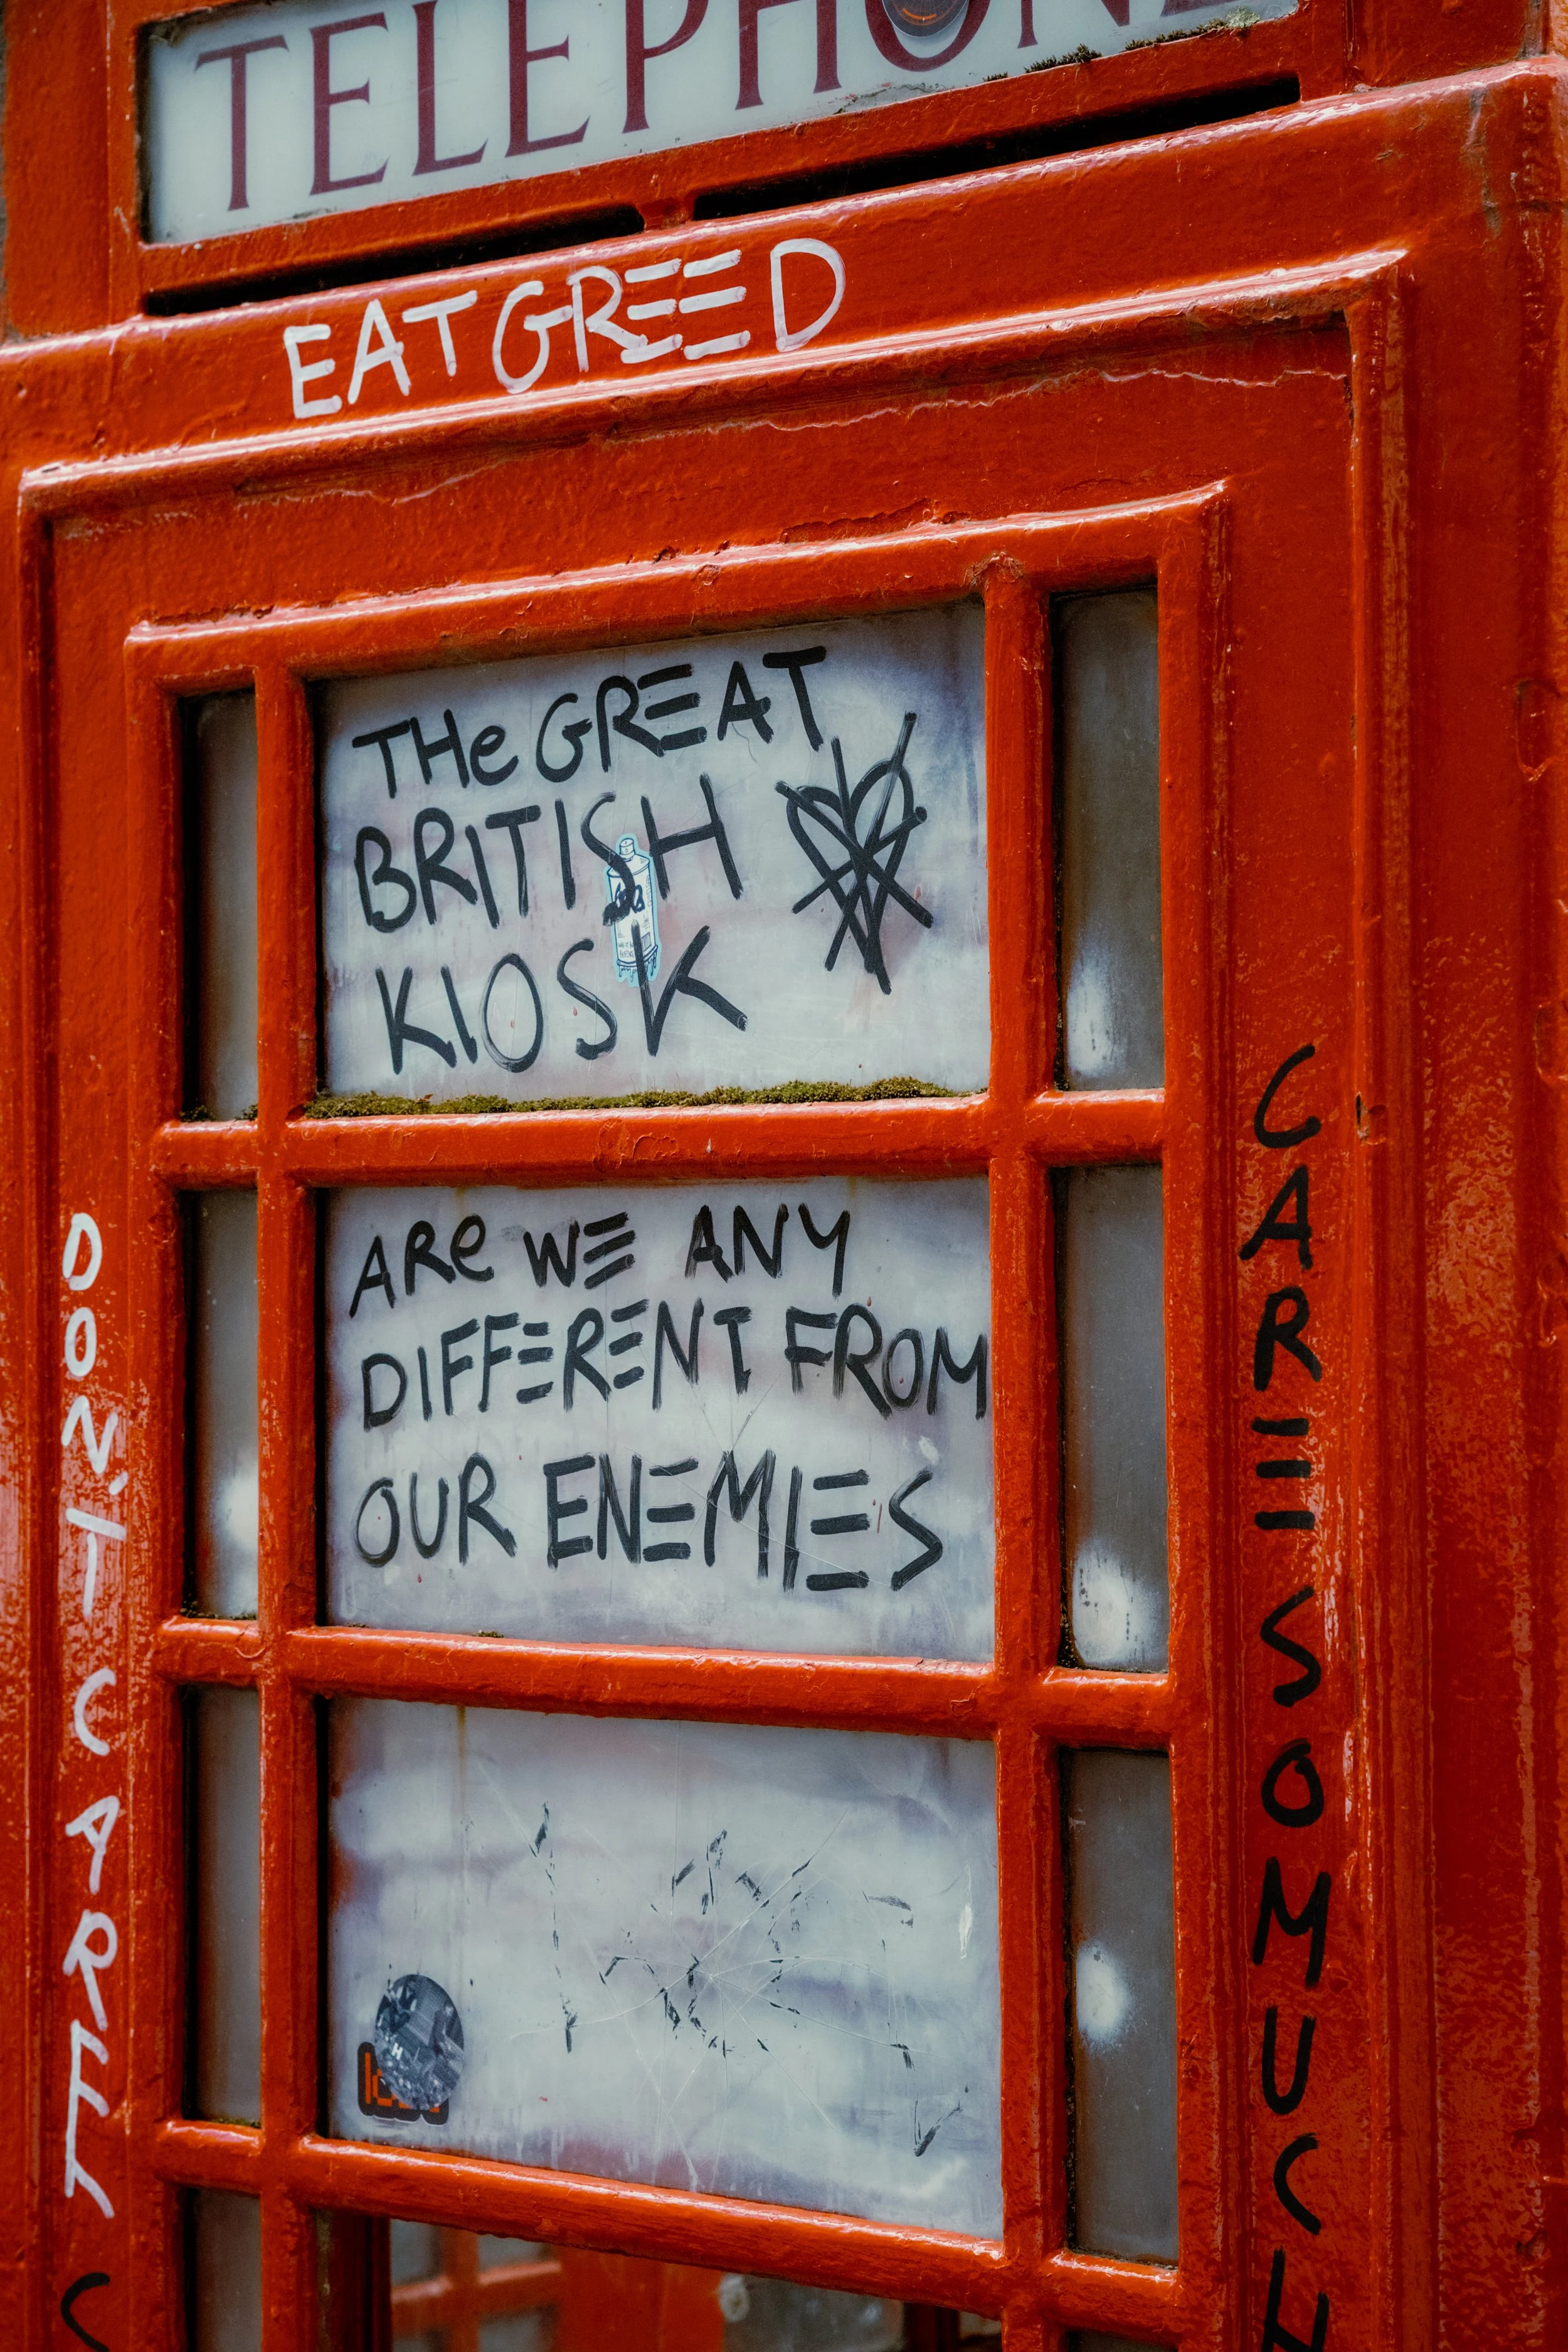 TELEPHONE
EAT GREED
THe GREAT
BRITISH
KIOSK
ARe WE ANY
DIFFERENT FROM
OUR ENEMIES
DON'T CARE
CARE SO MUCH